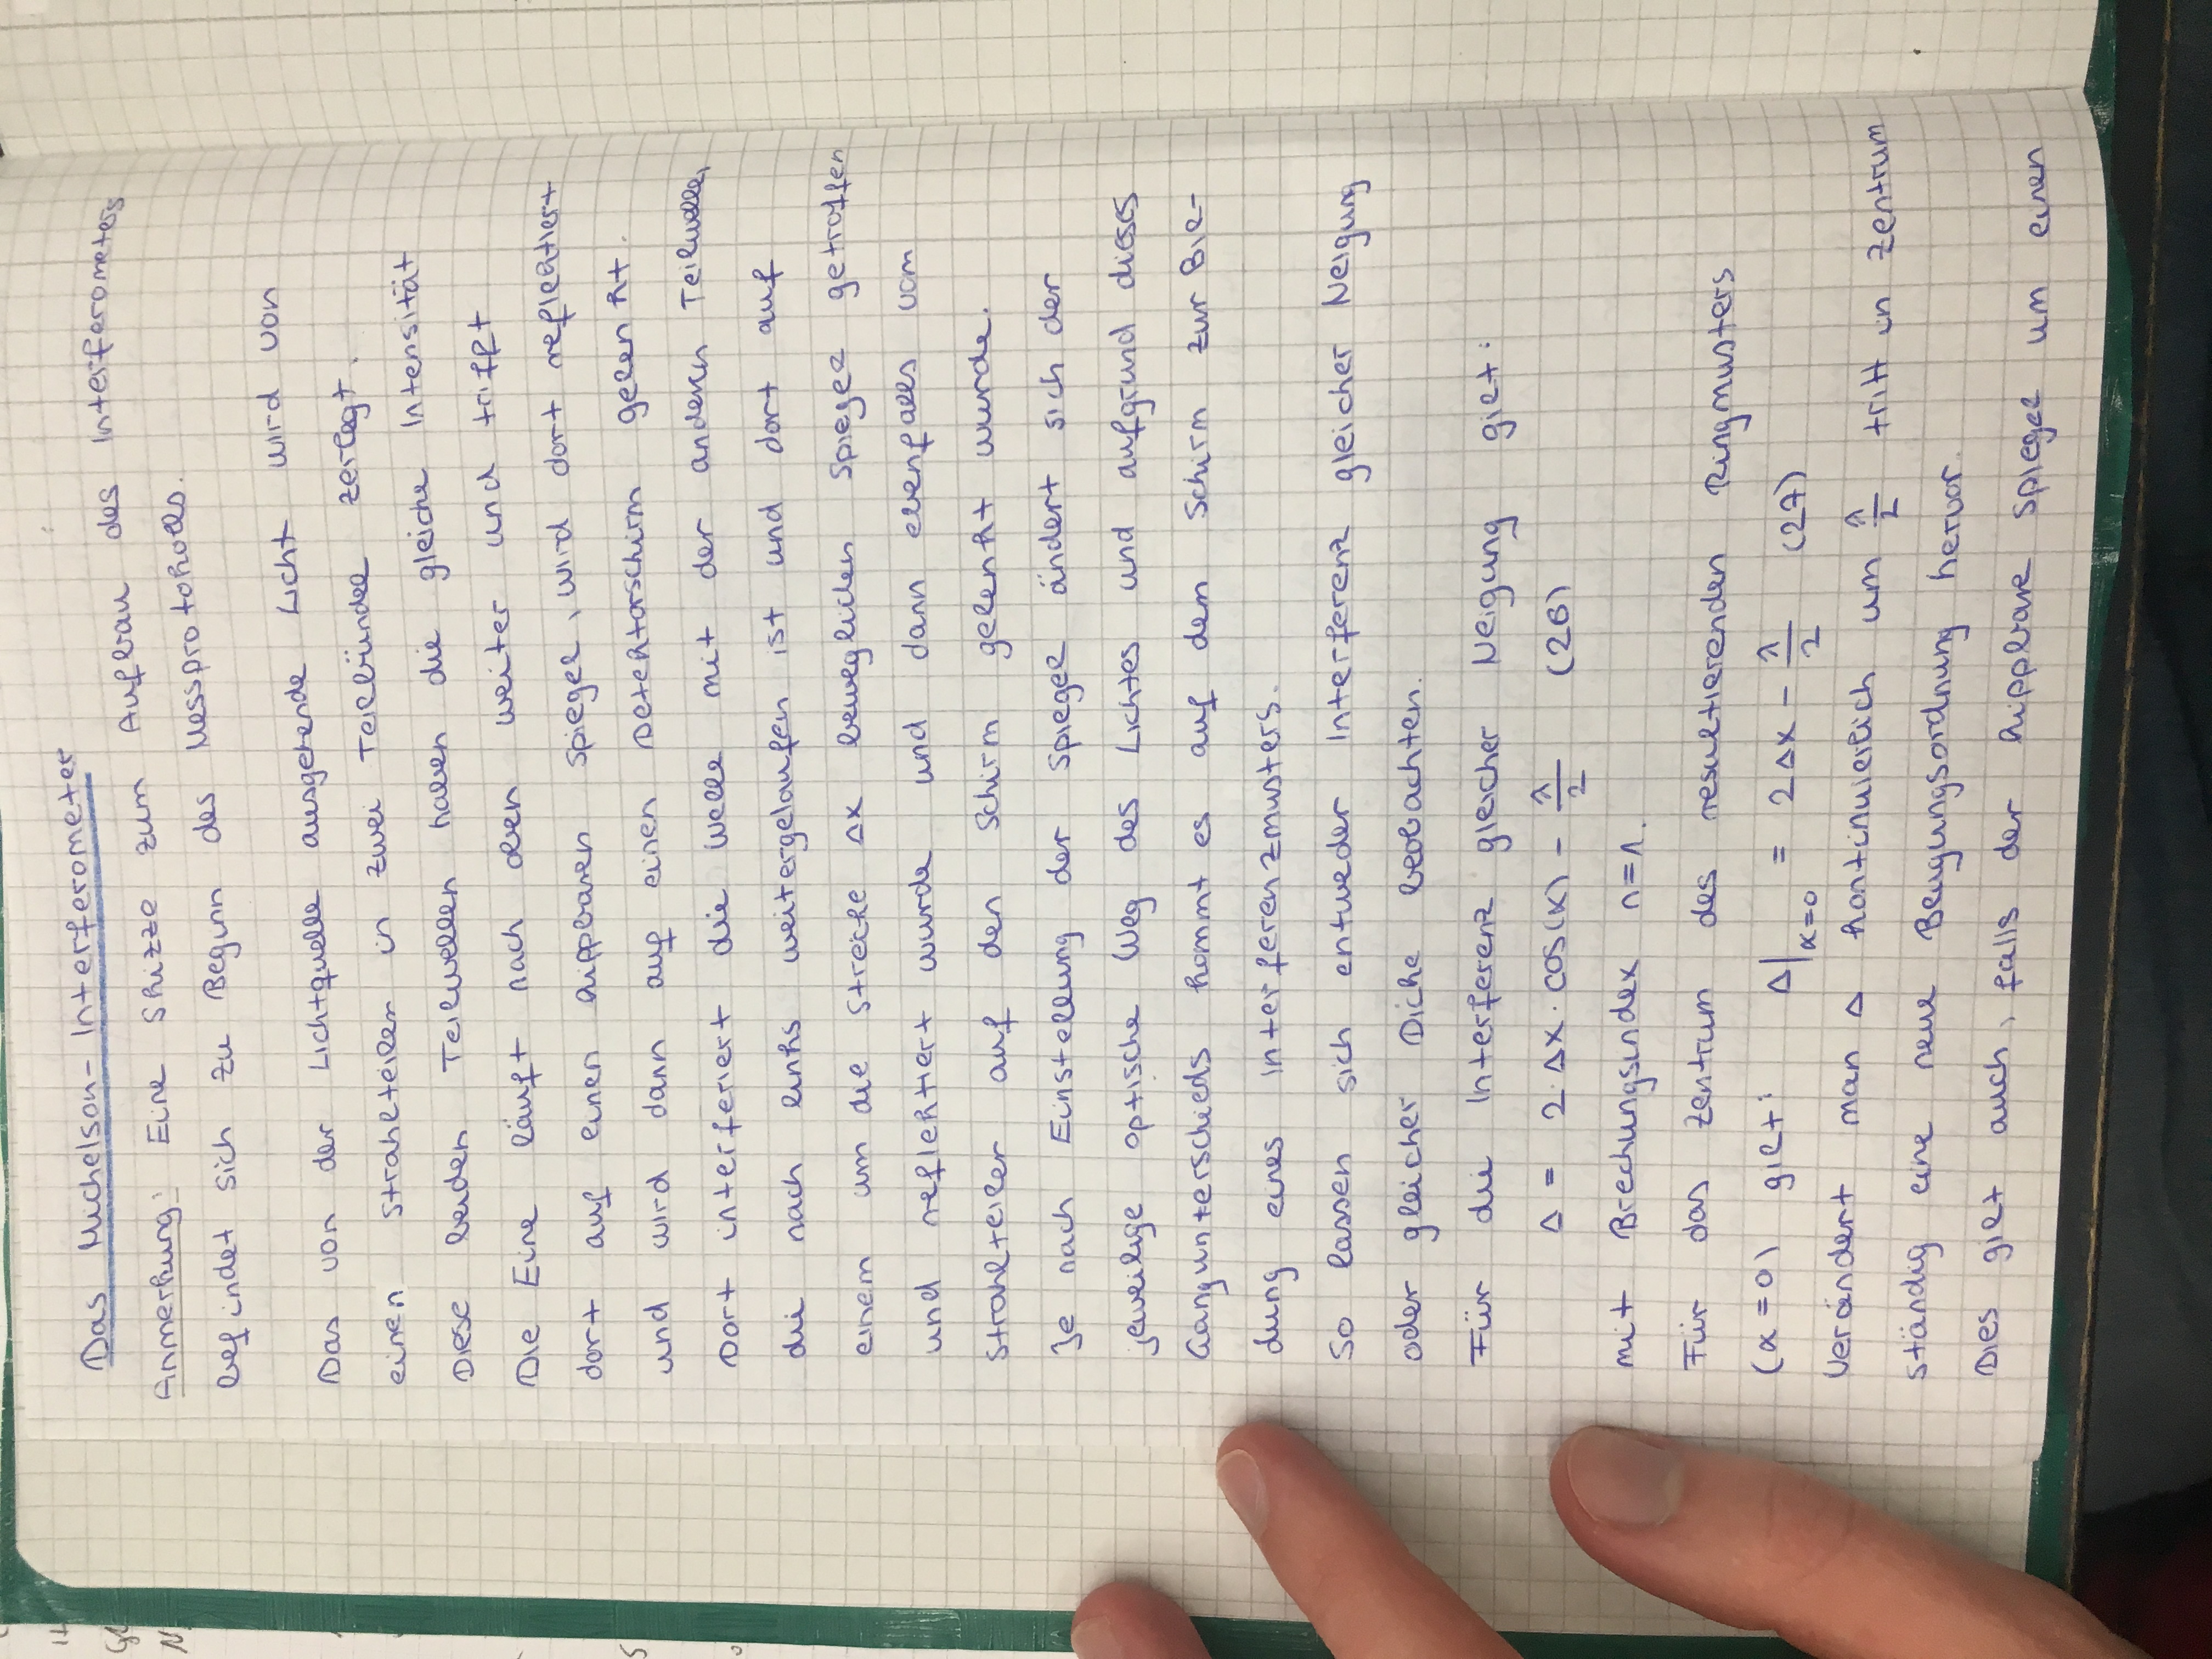 Das Michelson-Interferometer
Anmerkung: Eine Skizze zum Aufbau des Interferometers
befindet sich zu Beginn des Messprotokolls.
Das von der Lichtquelle ausgehende Licht wird von
einen Strahlteiler in zwei Teilbündel zerlegt.
Diese beiden Teilwellen haben die gleiche Intensität
Die Eine läuft nach oben weiter und trifft
dort auf einen kippbaren Spiegel, wird dort reflektiert
und wird dann auf einen Detektorschirm gelenkt.
Dort interferiert die Welle mit der anderen Teilwelle,
die nach links weitergelaufen ist und dort auf
einem um die Strecke Δx beweglichen Spiegel getroffen
und reflektiert wurde und dann ebenfalls vom
Strahlteiler auf den Schirm gelenkt wurde.
Je nach Einstellung der Spiegel ändert sich der
jeweilige optische Weg des Lichtes und aufgrund dieses
Gangunterschieds kommt es auf dem Schirm zur Bil-
dung eines Interferenzmusters.
So lassen sich entweder Interferenz gleicher Neigung
oder gleicher Dicke beobachten.
Für die Interferenz gleicher Neigung gilt:
Δ = 2·Δx·cos(α) - λ/2 (26)
mit Brechungsindex n=1.
Für das Zentrum des resultierenden Ringmusters
(α=0) gilt: Δ|α=0 = 2Δx - λ/2 (27)
Verändert man Δ kontinuierlich um λ/2 tritt in Zentrum
ständig eine neue Beugungsordnung hervor.
Dies gilt auch, falls der kippbare Spiegel um einen